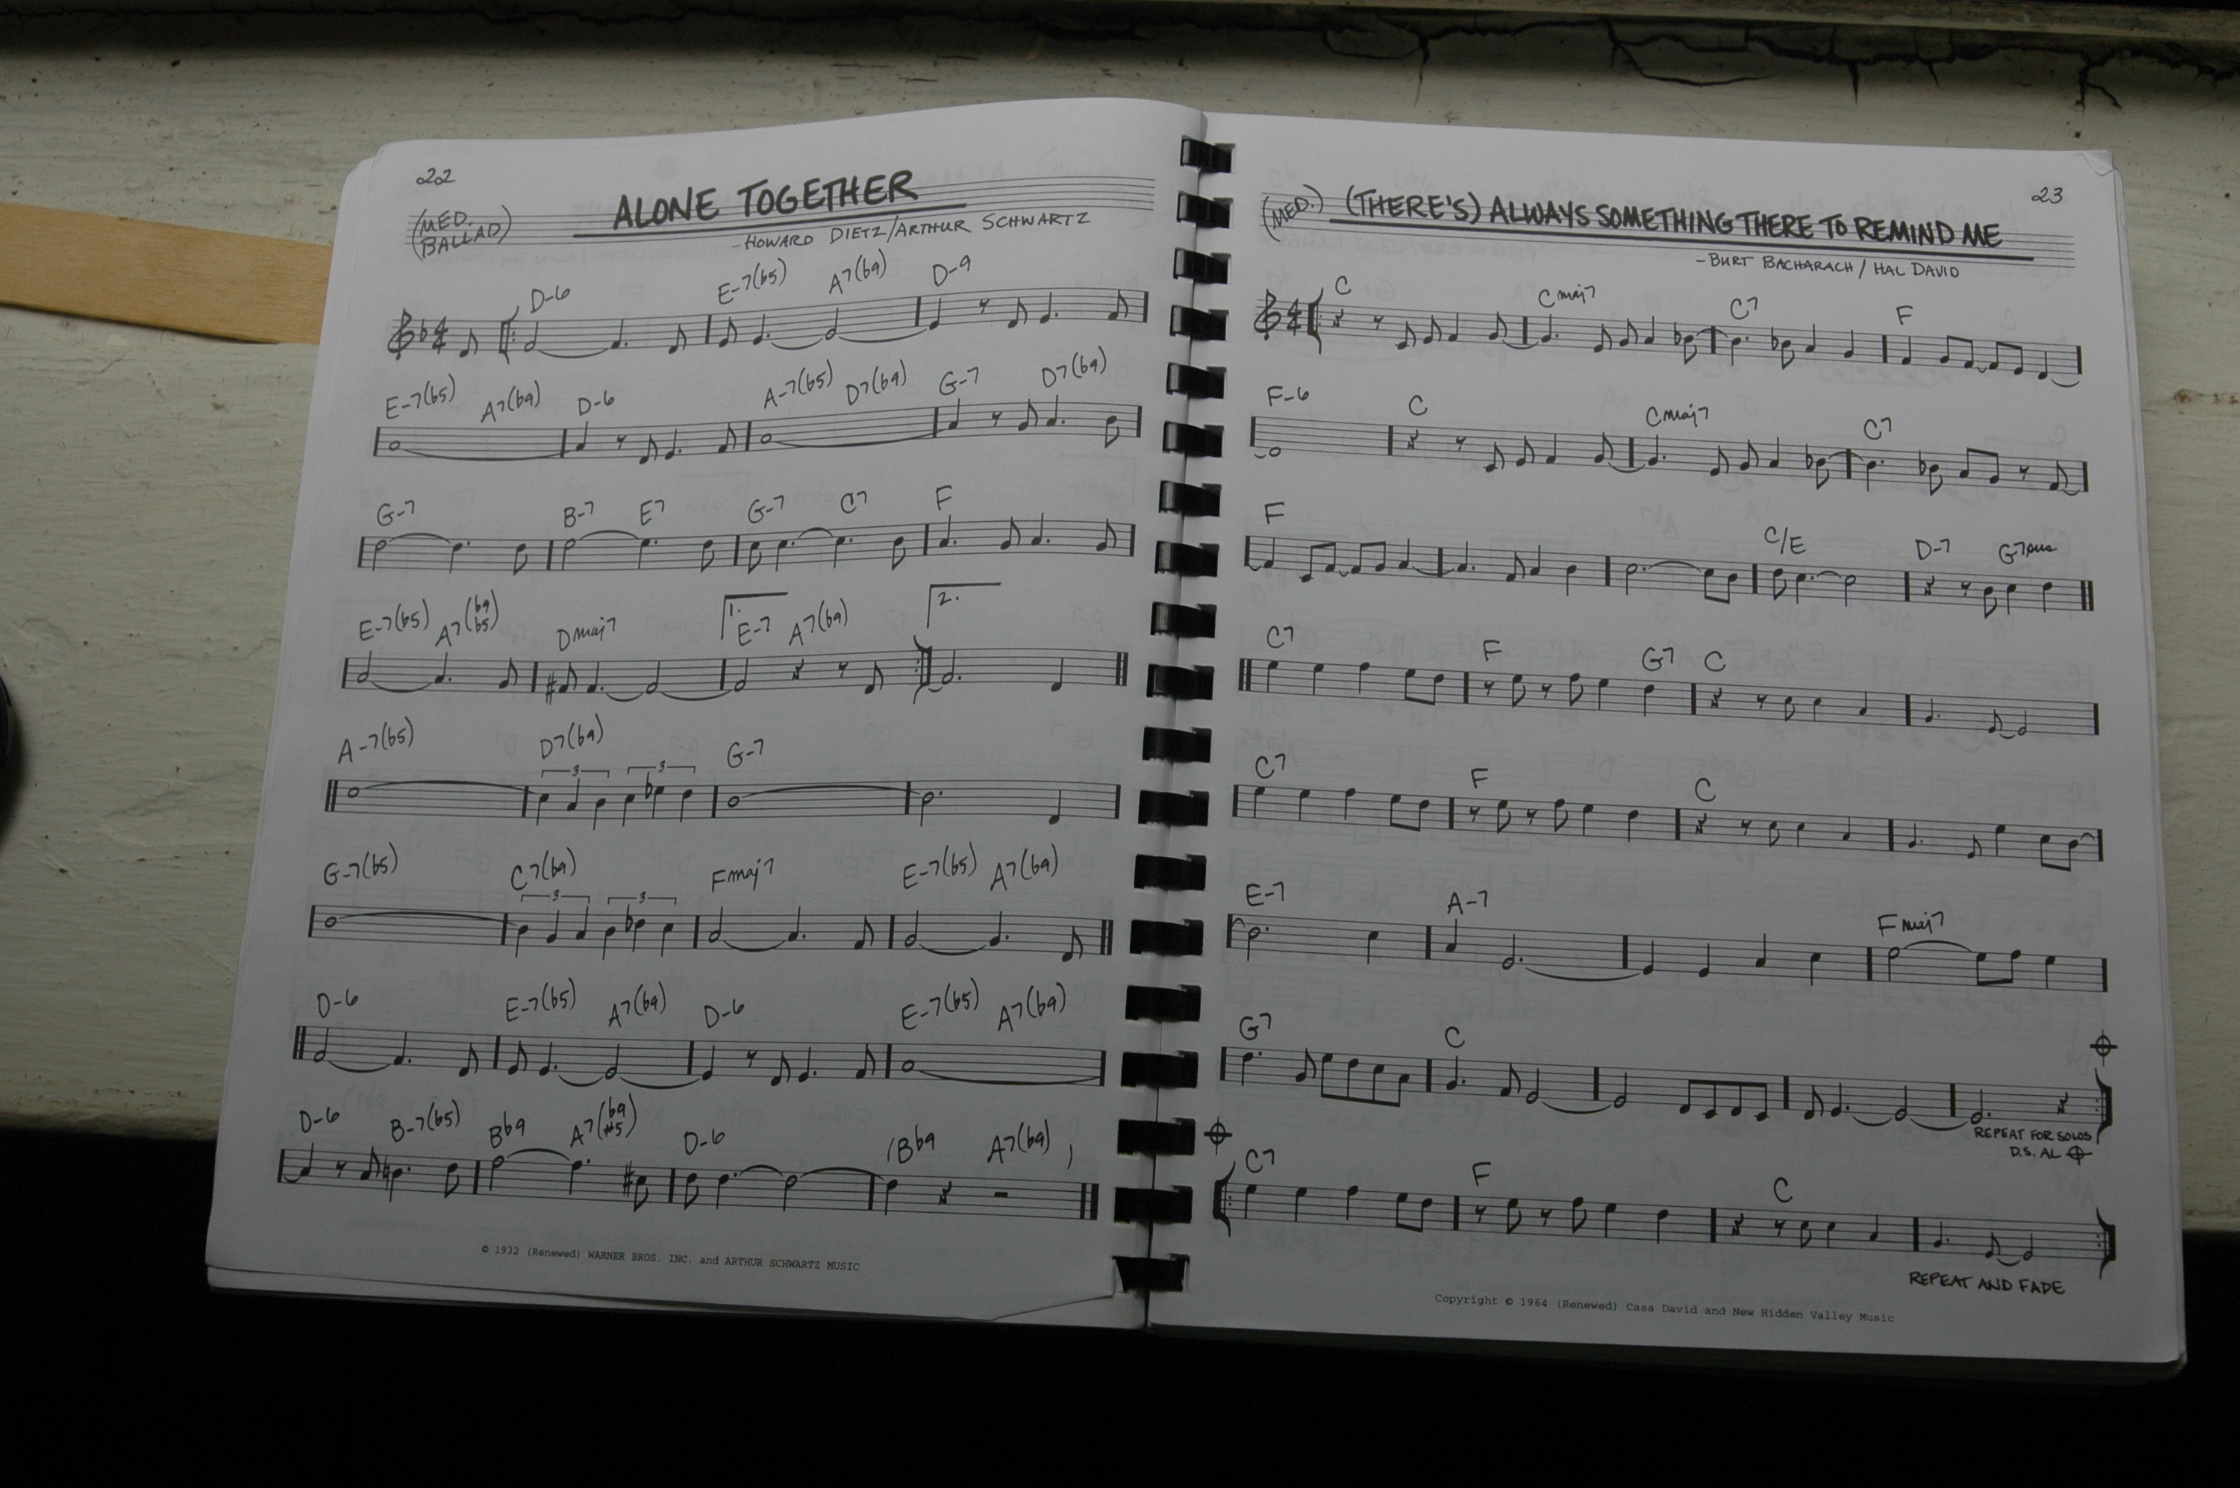 22
(MED. BALLAD)
ALONE TOGETHER
-HOWARD DIETZ/ARTHUR SCHWARTZ
D-6 E-7(b5) A7(b9) D-9
E-7(b5) A7(b9) D-6 A-7(b5) D7(b9) G-7 D7(b9)
G-7 B-7 E7 G-7 C7 F
E-7(b5) A7(b9 b5) Dmaj7 1. E-7 A7(b9) 2.
A-7(b5) D7(b9) G-7
3 3
G-7(b5) C7(b9) Fmaj7 E-7(b5) A7(b9)
3 3
D-6 E-7(b5) A7(b9) D-6 E-7(b5) A7(b9)
D-6 B-7(b5) Bb9 A7(b9 #5) D-6 (Bb9 A7(b9))
© 1932 (Renewed) WARNER BROS. INC. and ARTHUR SCHWARTZ MUSIC
23
(MED.) (THERE'S) ALWAYS SOMETHING THERE TO REMIND ME
-BURT BACHARACH/HAL DAVID
C Cmaj7 C7 F
F-6 C Cmaj7 C7
F C/E D-7 G7sus
C7 F G7 C
C7 F C
E-7 A-7 Fmaj7
G7 C
REPEAT FOR SOLOS
D.S. AL
C7 F C
REPEAT AND FADE
Copyright © 1964 (Renewed) Casa David and New Hidden Valley Music